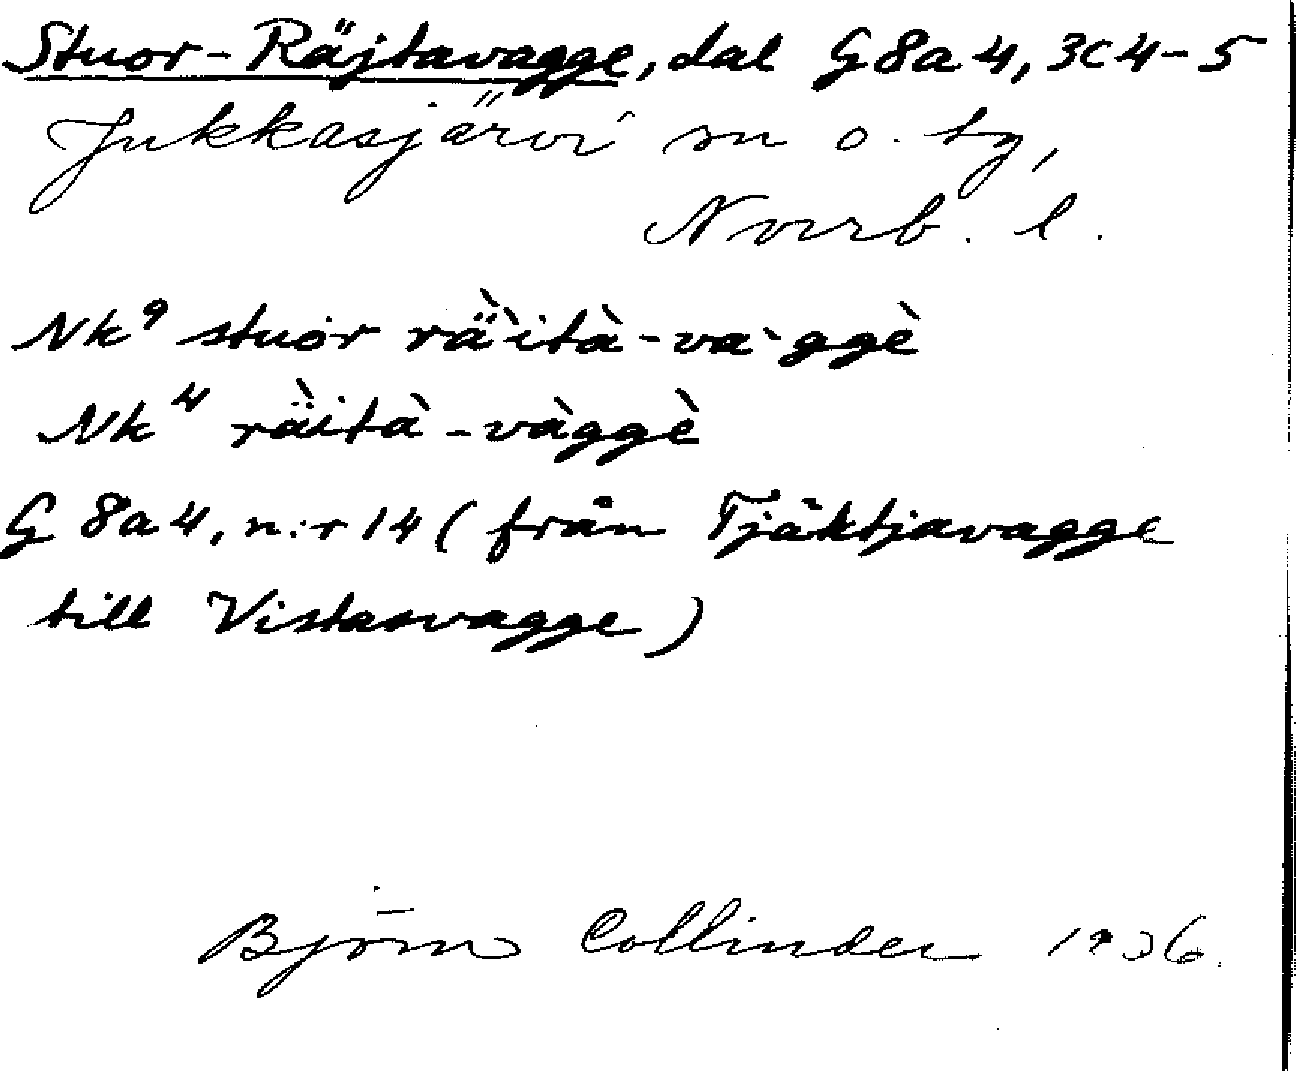 Stuor-Räjtavagge, dal G8a4, 3C4-5
Jukkasjärvi sn o. tg,
Norrb. l.
Nk⁹ stuor rä̀ità-va`ggè
Nk⁴ rä̀ità-vàggè
G 8a4, n:r 14 (från Tjäktjavagge
till Vistasvagge)
Björn Collinder 1936.